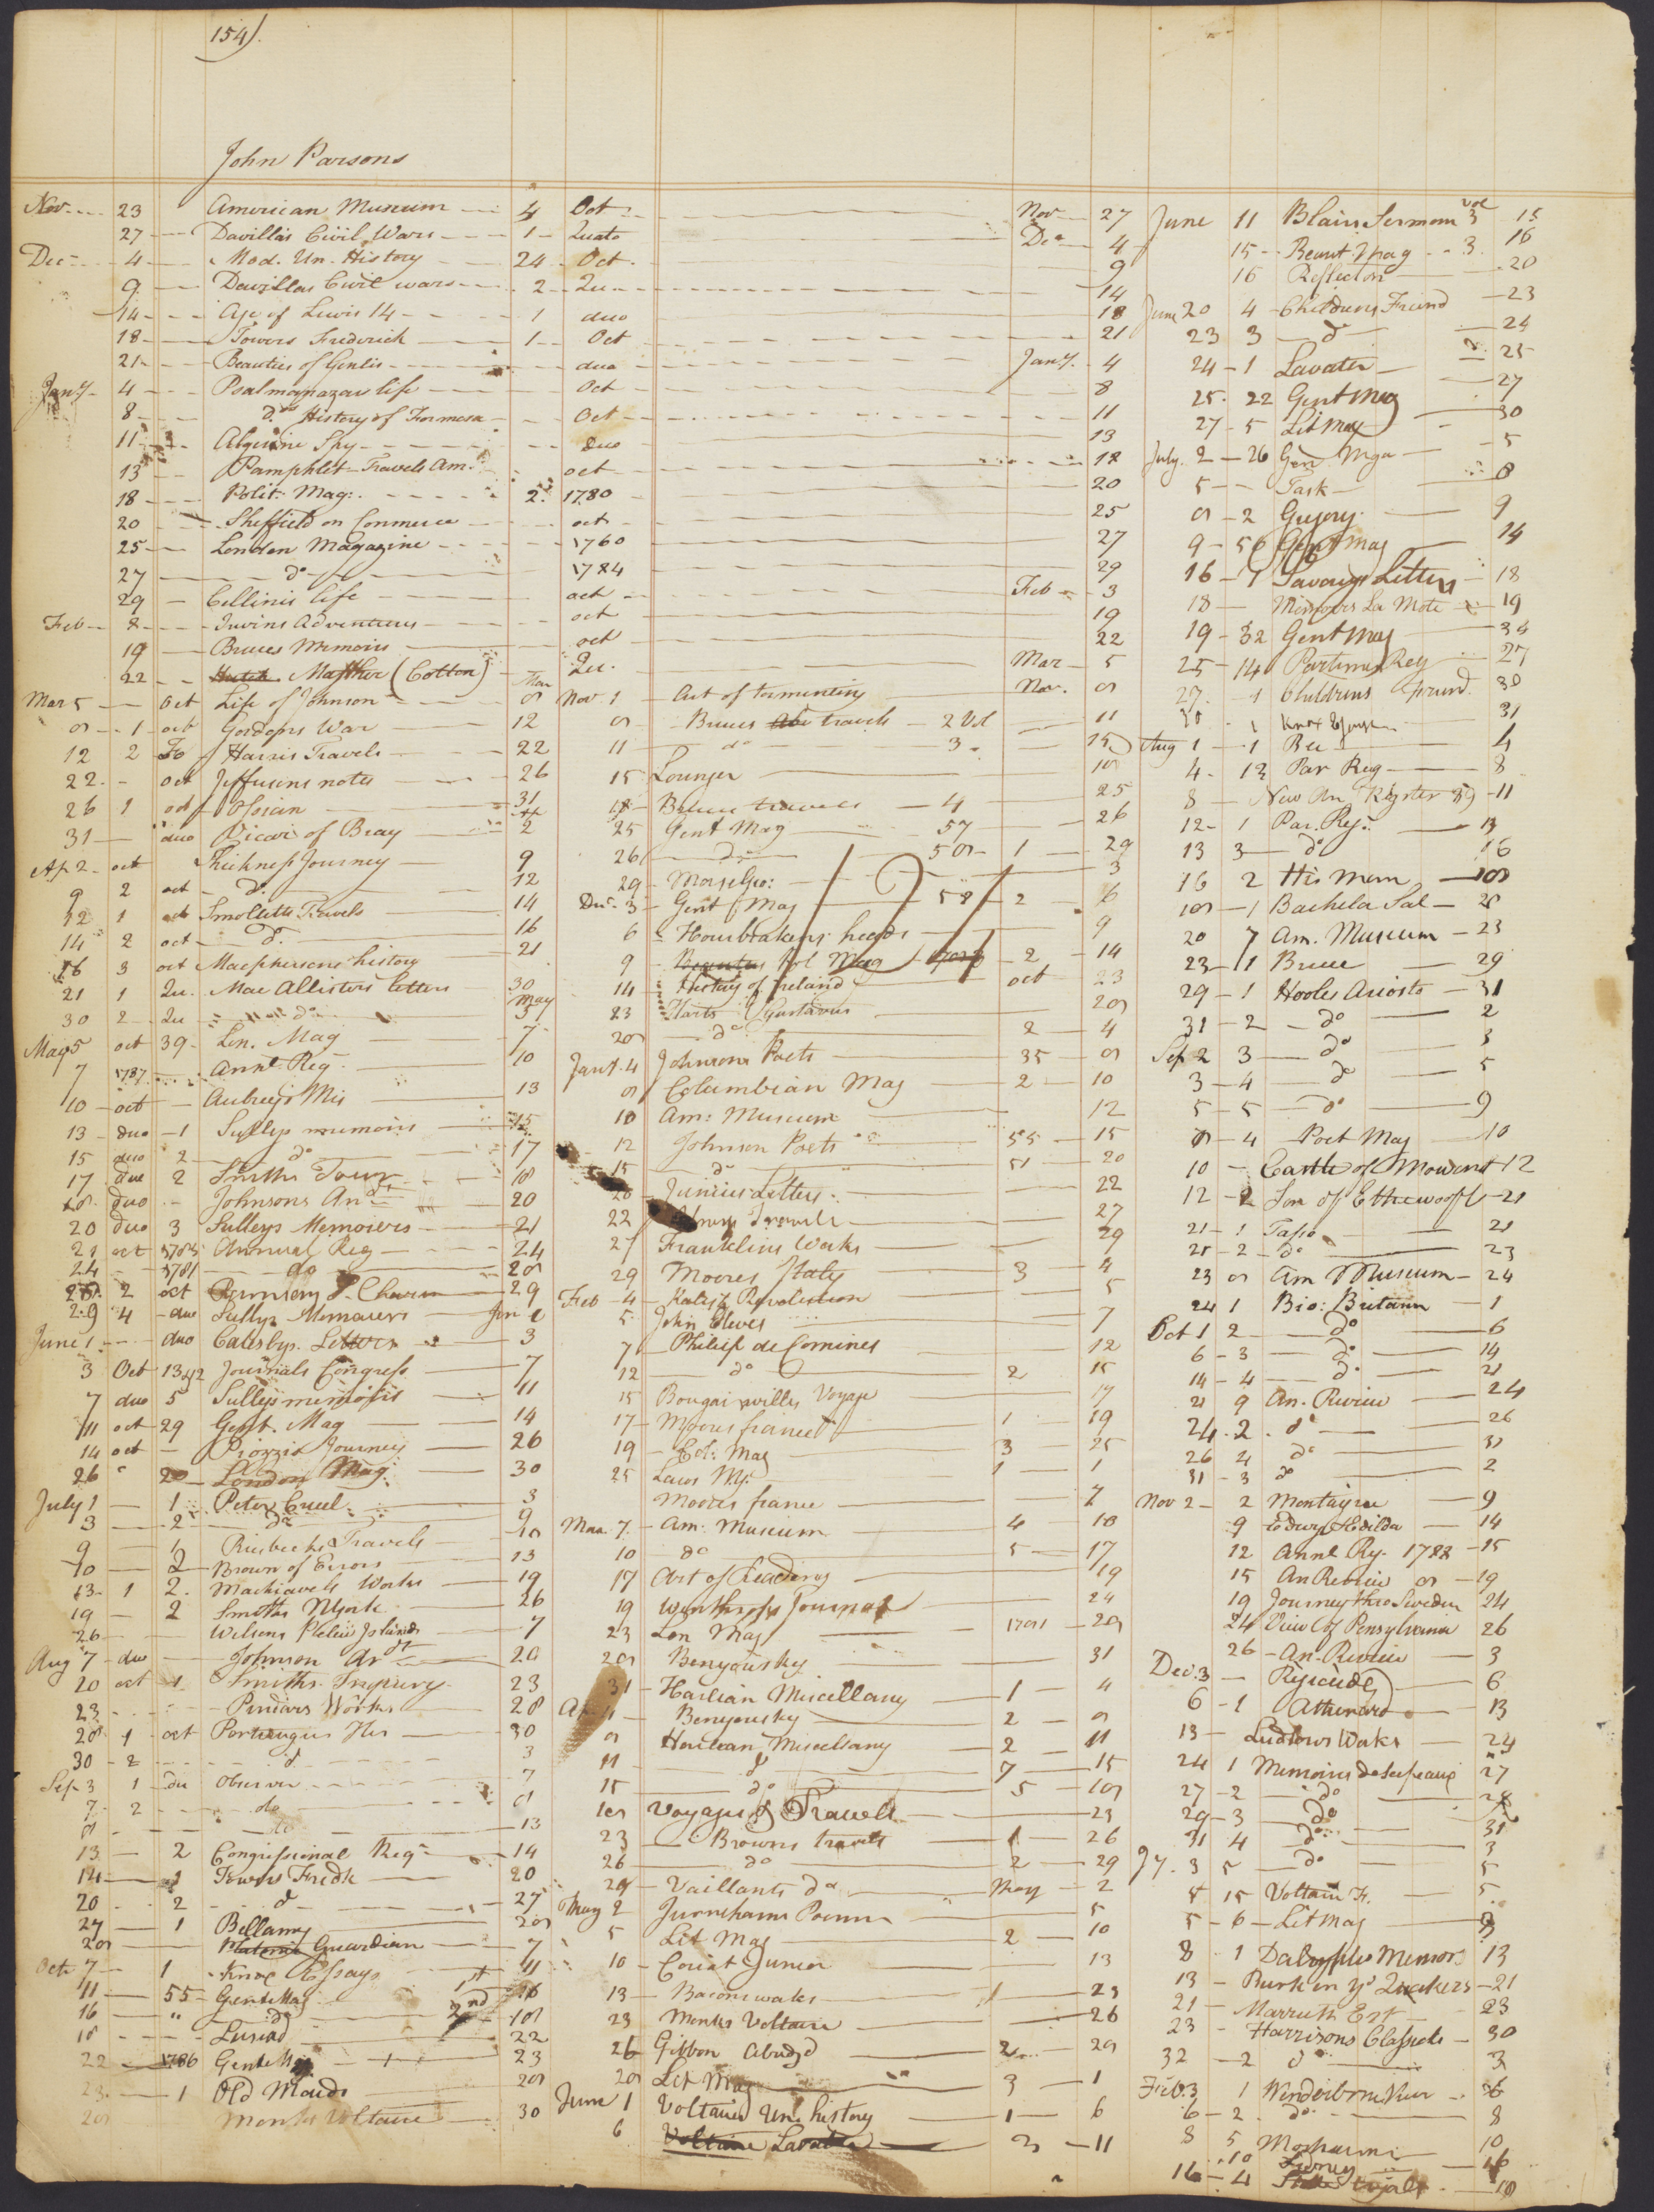 154).
John Parsons
Nov 23 American Museum 4 Oct Nov 27
27 Davilla's Civil Wars 1 Quato Dec 4
Dec 4 Mod. Un. History 24 Oct 9
9 Davillas Civil wars 2 Qu 14
14 Age of Lewis 14 1 duo 18
18 Towers Frederick 1 Oct 21
21 Beauties of Genlis duo Jany. 4
Jany 4 Psalmanazars life Oct 8
8 do History of Formosa Oct 11
11 Algerine Spy Duo 13
13 Pamphlet Travels Am. oct 18
18 Polit. Mag: 2. 1780 20
20 Sheffield on Commerce oct 25
25 London Magazine 1760 27
27 do 1784 29
29 Cellinis life oct Feb 3
Feb 8 Irwins Adventures oct 19
19 Bruces Memoirs oct 22
22 Mather (Cotton) Qu. Mar 5
Mar 5 Oct Life of Johnson 8
8 1 oct Gordons War 12
12 2 Fo Harris Travels 22
22 oct Jeffersons notes 26
26 1 oct Ossian 31
31 duo Vicar of Bray Ap 2
Ap 2 oct Thickness Journey 9
9 2 oct do 12
12 1 oct Smolletts Travels 14
14 2 oct do 16
16 3 oct Macphersons history 21
21 1 Qu. Mac Allisters letters 30
30 2 Qu do May 5
May 5 oct 39 Lon. Mag 7
7 1787 Annl. Reg 10
10 oct Aubreys Mis 13
13 duo 1 Sullys memoirs 15
15 duo 2 do 17
17 duo 2 Smiths Tour 18
18 duo Johnsons An 20
20 duo 3 Sulleys Memoiers 21
21 oct 1783 Annual Reg 24
24 1781 do 28
28 2 oct 29
29 4 duo Sullys Memoiers Jun 1
June 1 duo Calesbys Letters 3
3 Oct 13 Journals Congress 7
7 duo 5 Sullys memoirs 11
11 oct 29 Gent. Mag 14
14 oct Piozzis Journey 26
26 20 London Mag. 30
July 1 1 Peter Cueel 3
3 2 do 9
9 1 Riesbecks Travels 10
10 2 Brown of Errors 13
13 1 2 Machiavels Works 19
19 2 Smiths NYork 26
26 Wilsons Pelew Islands 7
Aug 7 duo Johnson 20
20 oct 1 Smiths Inquiry 23
23 Pindars Works 28
28 1 oct Portengus His 30
30 2 d 3
Sep 3 1 du Observer 7
7 2 do 8
8 do 13
13 2 Congressional Regr 14
14 1 Towers Fredk 20
20 2 d 27
27 1 Bellamy 28
28 Guardian 7
Oct 7 1 Knox Essays 11
11 55 Gent Mag 1st 16
16 " do 2nd 18
18 Lusiad 22
22 1786 Gent Mag 23
23 1 Old Maids 28
28 Monks Voltaire 30
Nov 1 Art of tormenting Nov. 8
8 Bruces travels 2 Vol 11
11 do 3 15
15 Lounger 18
18 Bruce travels 4 25
25 Gent Mag 57 26
26 do 58 1 29
29 Morse Geo: 3
Dec. 3 Gent Mag 58 2 6
6 Houbrakens heads 9
9 Pol Mag 2 14
14 History of Ireland oct 23
23 Harts Gustavus 28
28 do 2 4
Jany. 4 Johnsons Poets 35 8
8 Columbian Mag 2 10
10 Am: Museum 12
12 Johnson Poets 55 15
15 do 51 20
20 Junius Letters 22
22 Travels 27
27 Franklins Works 29
29 Moores Italy 3 4
Feb 4 Revolution 5
5 John Cleves 7
7 Philip de Comines 12
12 do 2 15
15 Bougainvilles Voyage 17
17 Moores france 1 19
19 Col: Mag 3 25
25 Laws 1 1
Moores france 7
Mar. 7 Am: Museum 4 10
10 do 5 17
17 Art of Reading 19
19 Winthrops Journal 24
23 Lon Mag 1781 28
28 Benyousky 31
31 Harlian Miscellany 1 4
Ap 4 Benyousky 2 8
8 Harlean Miscellany 2 11
11 d 7 15
15 do 5 18
18 Voyages & Travels 23
23 Browns travels 1 26
26 do 2 29
29 Vaillants do May 2
May 2 Jerninghams Poems 5
5 Lit Mag 2 10
10 Coriat Junior 13
13 Bacons works 1 23
23 Monks Voltaire 26
26 Gibbon Abridgd 2 28
28 Lit Mag 3 1
June 1 Voltaires Un. history 1 6
6 Voltaire Lavater 3 11
June 11 Blairs Sermons vol 3 15
15 Beauts. Mag 3 16
16 Reflector 20
June 20 4 Childrens Friend 23
23 3 do 24
24 1 Lavater 25
25 22 Gent Mag 27
27 5 Lit Mag 30
July 2 26 Gen Mga 5
5 Task 8
8 2 Gregory 9
9 56 Gent Mag 14
16 1 Savarys Letters 18
18 Memoirs La Mote 19
19 32 Gent Mag 24
25 14 Parliamy Reg 27
27 1 Childrens friend 30
30 1 Knox Essays 31
Aug 1 1 Bee 4
4 13 Par Reg 8
8 New An Rigster 89 11
12 1 Par. Reg. 13
13 3 do 16
16 2 His Mem 18
18 1 Bachelor Sal 20
20 7 Am. Museum 23
23 1 Bruce 29
29 1 Hooles Ariosto 31
31 2 do 2
Sep 2 3 do 3
3 4 do 5
5 5 do 9
8 4 Poet Mag 10
10 Castle of Mowbray 12
12 2 Son of Ethelwolf 21
21 1 Tasso 21
21 2 do 23
23 8 Am Museum 24
24 1 Bio: Britann 1
Oct 1 2 do 6
6 3 do 14
14 4 do 21
21 9 An. Review 24
24 2 do 26
26 4 do 31
31 3 do 2
Nov 2 2 Montaigne 9
9 Edwy & Edilda 14
12 Annl Rg. 1788 15
15 An Review 8 19
19 Journey thro Sweden 24
24 View of Pensylvania 26
26 An. Review 3
Dec. 3 Rejicide 6
6 1 Athenaid 13
13 Ludlows Works 24
24 1 Memoires de Scipeaux 27
27 2 do 28
29 3 do 31
31 4 do 3
Jy. 3 5 do 5
5 15 Voltair F. 5
5 6 Lit Mag 8
8 1 Dalrymples Memoirs 13
13 Burk on ye Quakers 21
21 Marriott Est 23
23 Harrisons Classicks 30
32 2 do 3
Feb. 3 1 6
6 2 do 8
8 5 10
10 Sidney 16
16 4 18